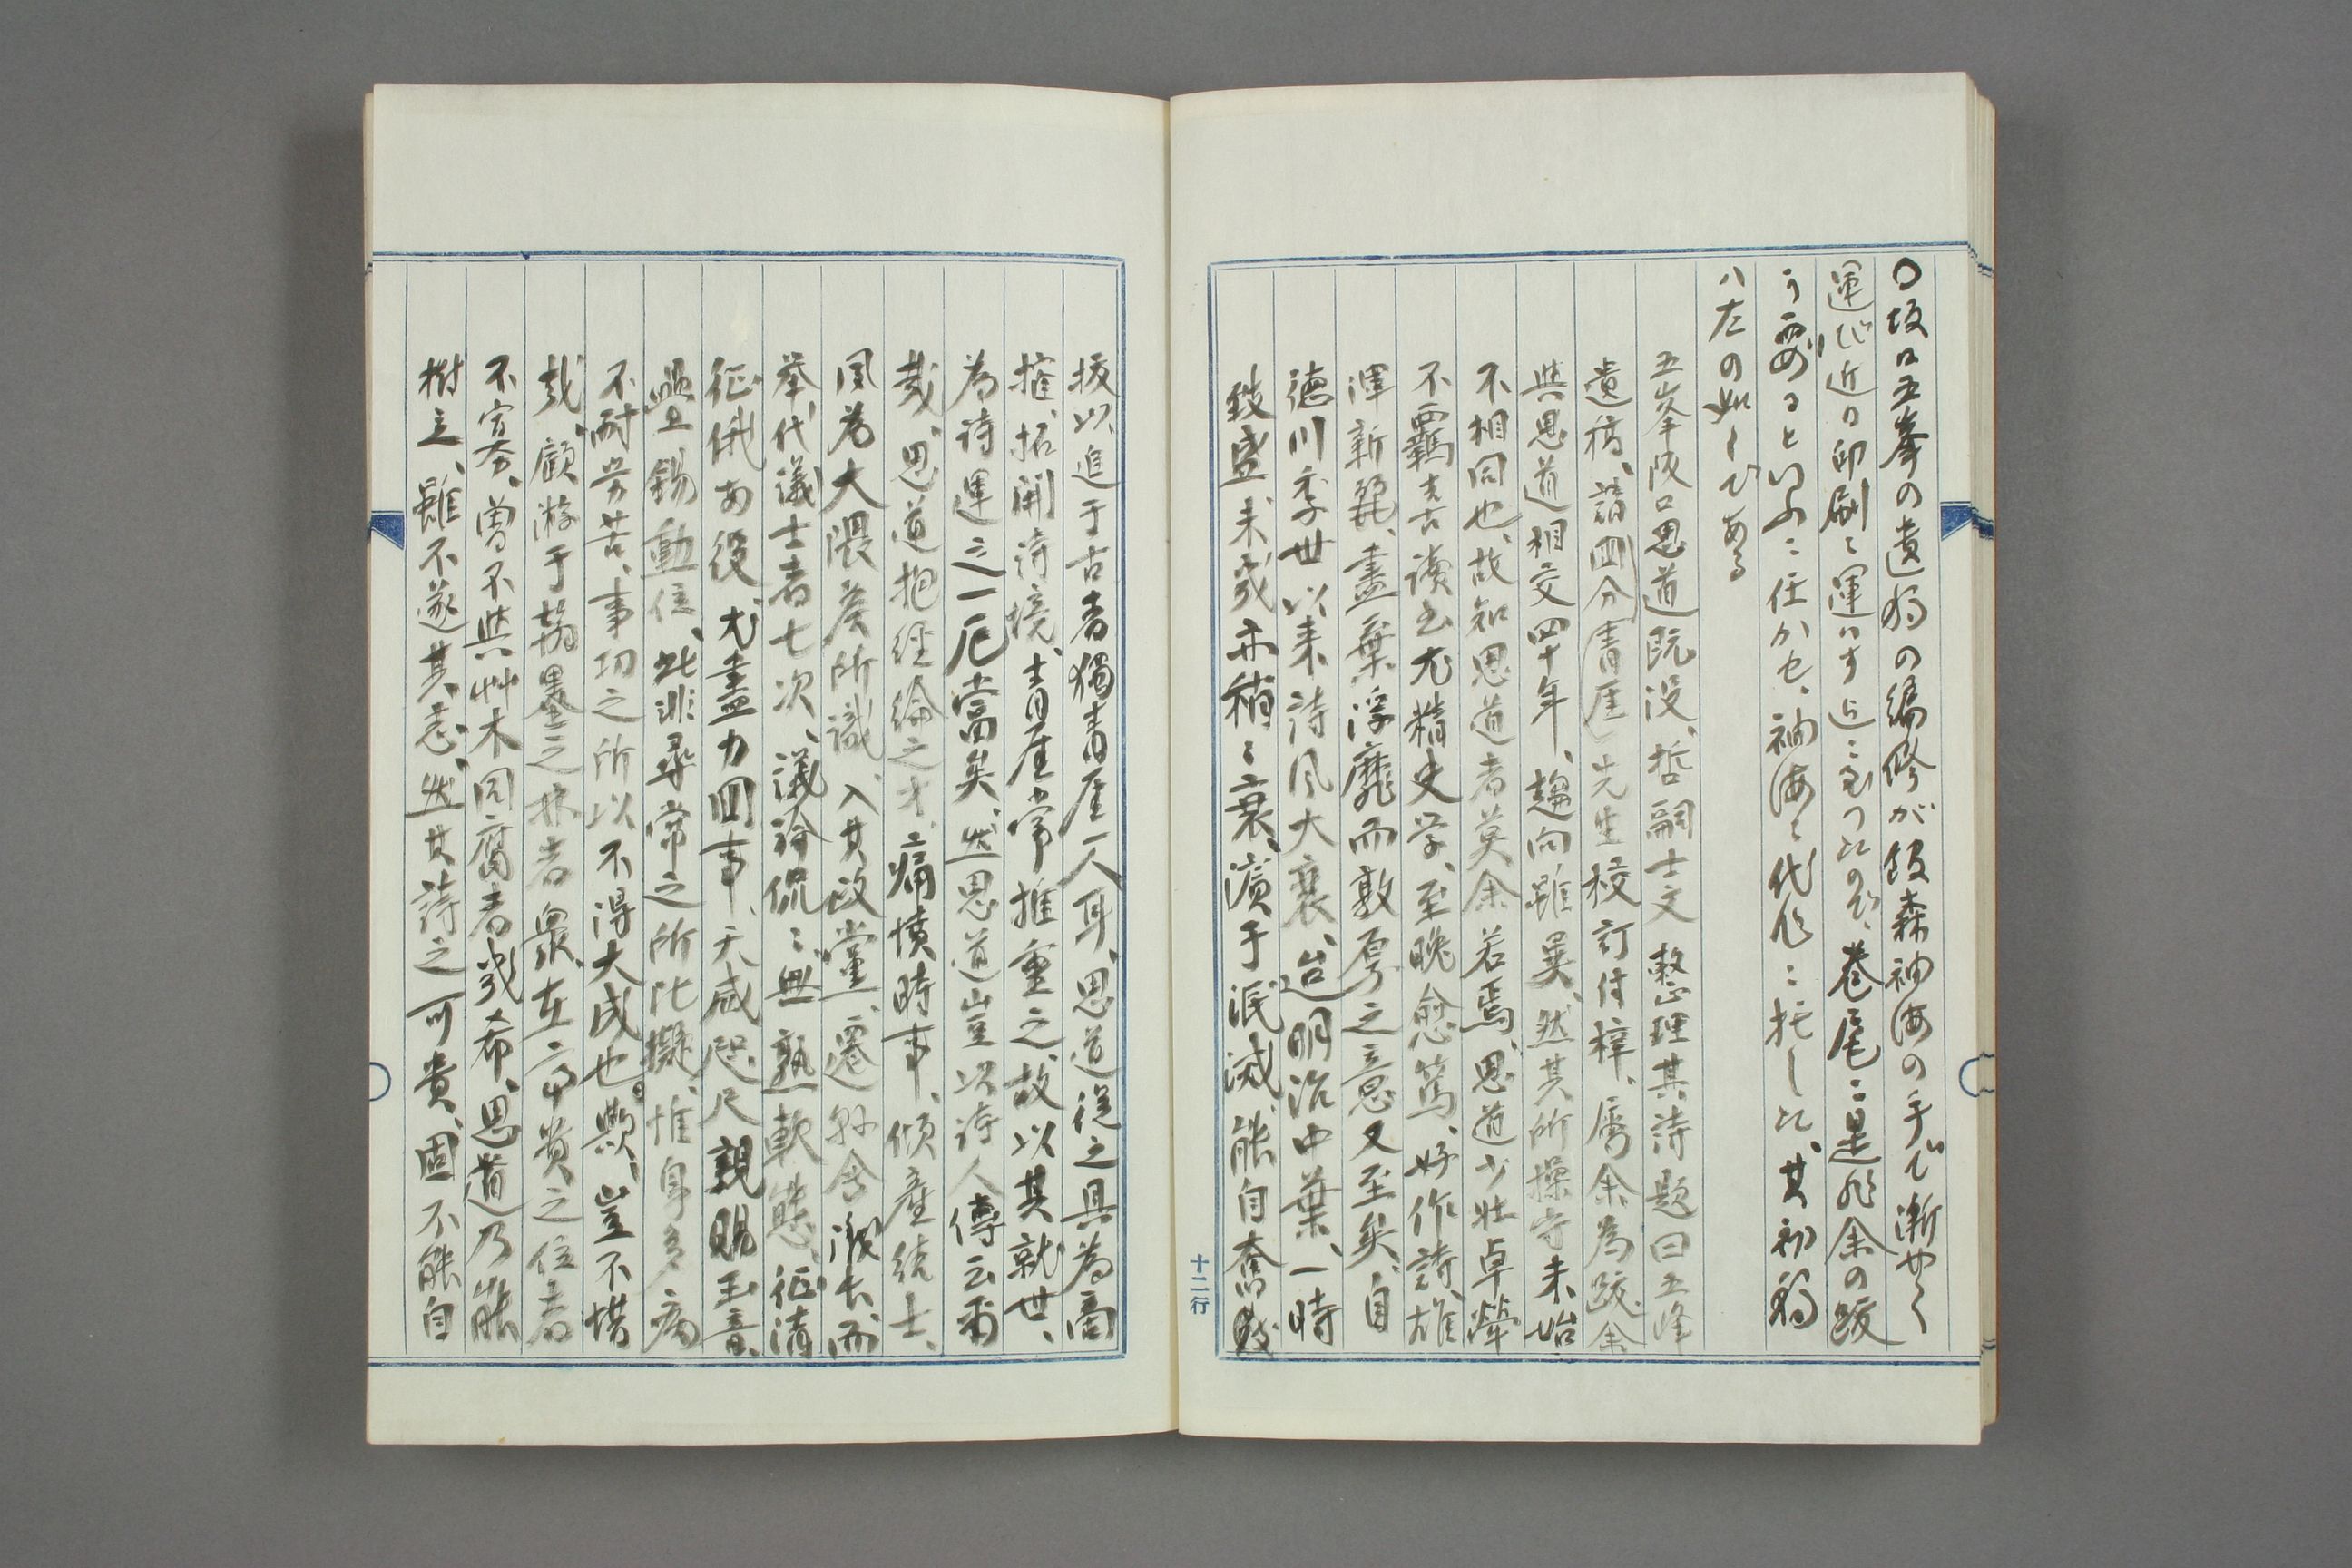 〇坂口五峯の遺稿の編修が阪森袖海の手で漸やく
運び近日印刷に運はす迄に至つたので、巻尾に是非余の跋
う要るといふに任かせ、袖海に代作に托した、其初稿
ハ左の如しである
五峯阪口思道既没、哲嗣士文整理其詩題曰五峰
遺稿、請国分青厓先生校訂付梓、属余為跋、余
与思道相交四十年、趨向雖異、然其所操守未始
不相同也、故知思道者莫余若焉、思道少壮卓犖
不羈、喜読書尤精史学、至晩愈篤、好作詩、雄
渾新麗、尽棄浮靡而敦厚之意又至矣、自
徳川季世以来、詩風大衰、迨明治中葉、一時
致盛、未幾亦稍々衰、瀕于泯滅、能自奮

抜以進于古者独青厓一人耳、思道従之具為商
搉、拓開詩境、青厓常推重之、故以其就世、
為詩運之一厄当矣、然思道豈以詩人傳云爾
哉、思道抱経綸之才、痛憤時事、傾産結士、
夙為大隈侯所識、入其政党、遷 舍 長、而
挙代議士者七次、議論侃々無熟軟態、征清
征俄両役、尤尽力国事、天威咫尺親賜玉音、
盟上錫勲位、此非尋常之所比擬、惟身多病
不耐労苦、事功之所以不得大成也。然、豈不惜
哉、顧游于翰墨之林者衆、在 貴之位者
不寡、曽不与艸木同腐者幾希、思道乃能
樹立、雖不遂其志、然其詩之可貴、固不能自
十二行